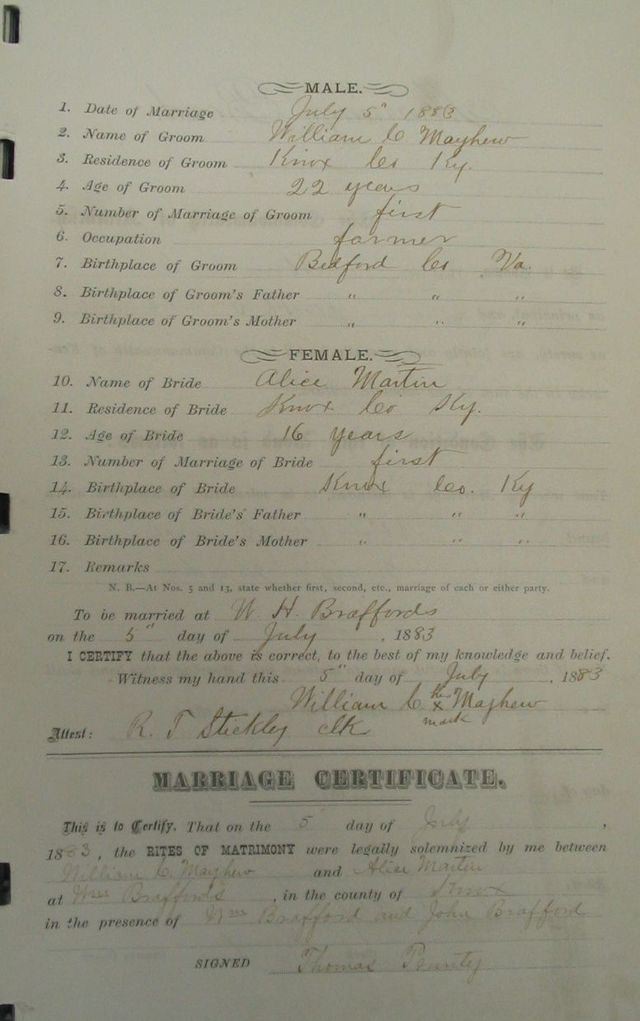 MALE.
1. Date of Marriage July 5" 1883
2. Name of Groom William C Mayhew
3. Residence of Groom Knox Co Ky.
4. Age of Groom 22 years
5. Number of Marriage of Groom first
6. Occupation farmer
7. Birthplace of Groom Bedford Co Va.
8. Birthplace of Groom's Father " " "
9. Birthplace of Groom's Mother " " "
FEMALE.
10. Name of Bride Alice Martin
11. Residence of Bride Knox Co Ky.
12. Age of Bride 16 years
13. Number of Marriage of Bride first
14. Birthplace of Bride Knox Co. Ky
15. Birthplace of Bride's Father " " "
16. Birthplace of Bride's Mother " " "
17. Remarks
N. B.—At Nos. 5 and 13, state whether first, second, etc., marriage of each or either party.
To be married at W. H. Braffords
on the 5" day of July, 1883
I CERTIFY that the above is correct, to the best of my knowledge and belief.
Witness my hand this 5" day of July, 1883
William C his x mark Mayhew
Attest: R. T Stickley clk
MARRIAGE CERTIFICATE.
This is to Certify, That on the 5 day of July,
1883, the RITES OF MATRIMONY were legally solemnized by me between
William C. Mayhew and Alice Martin
at Braffords, in the county of Knox
in the presence of Brafford and John Brafford
SIGNED Thomas